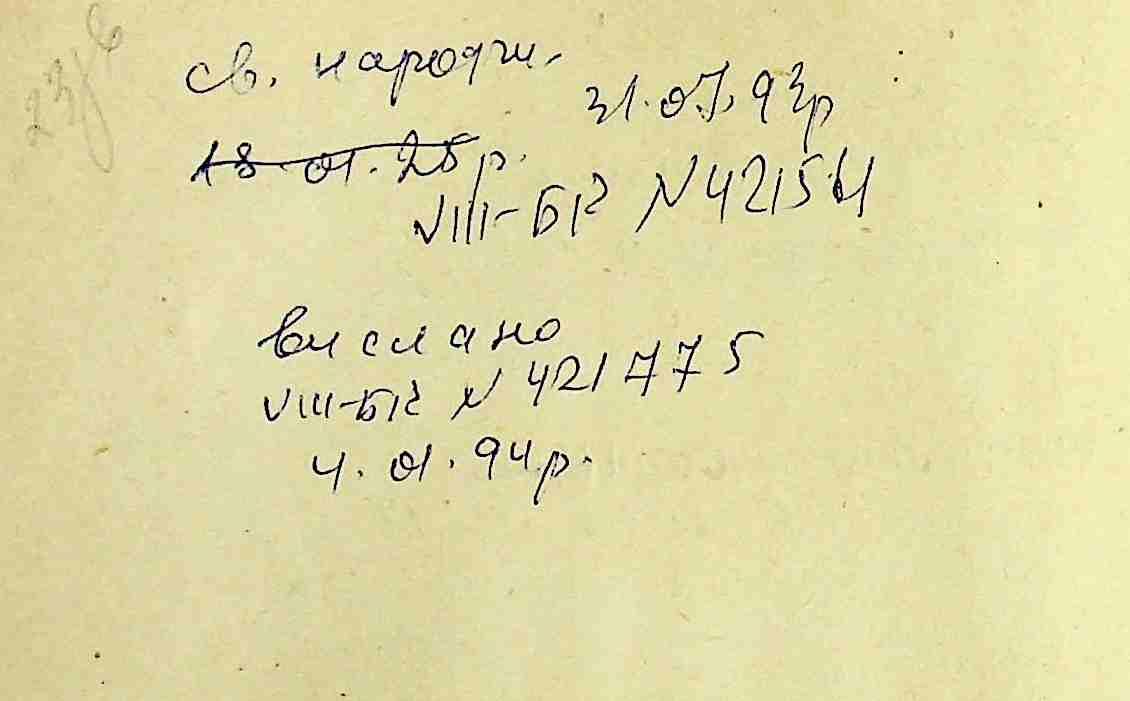 св. народж.
31.07.93р
18.01.25р.
VIII-БК №421511
вислано
VIII-БК № 421775
4.01.94р.